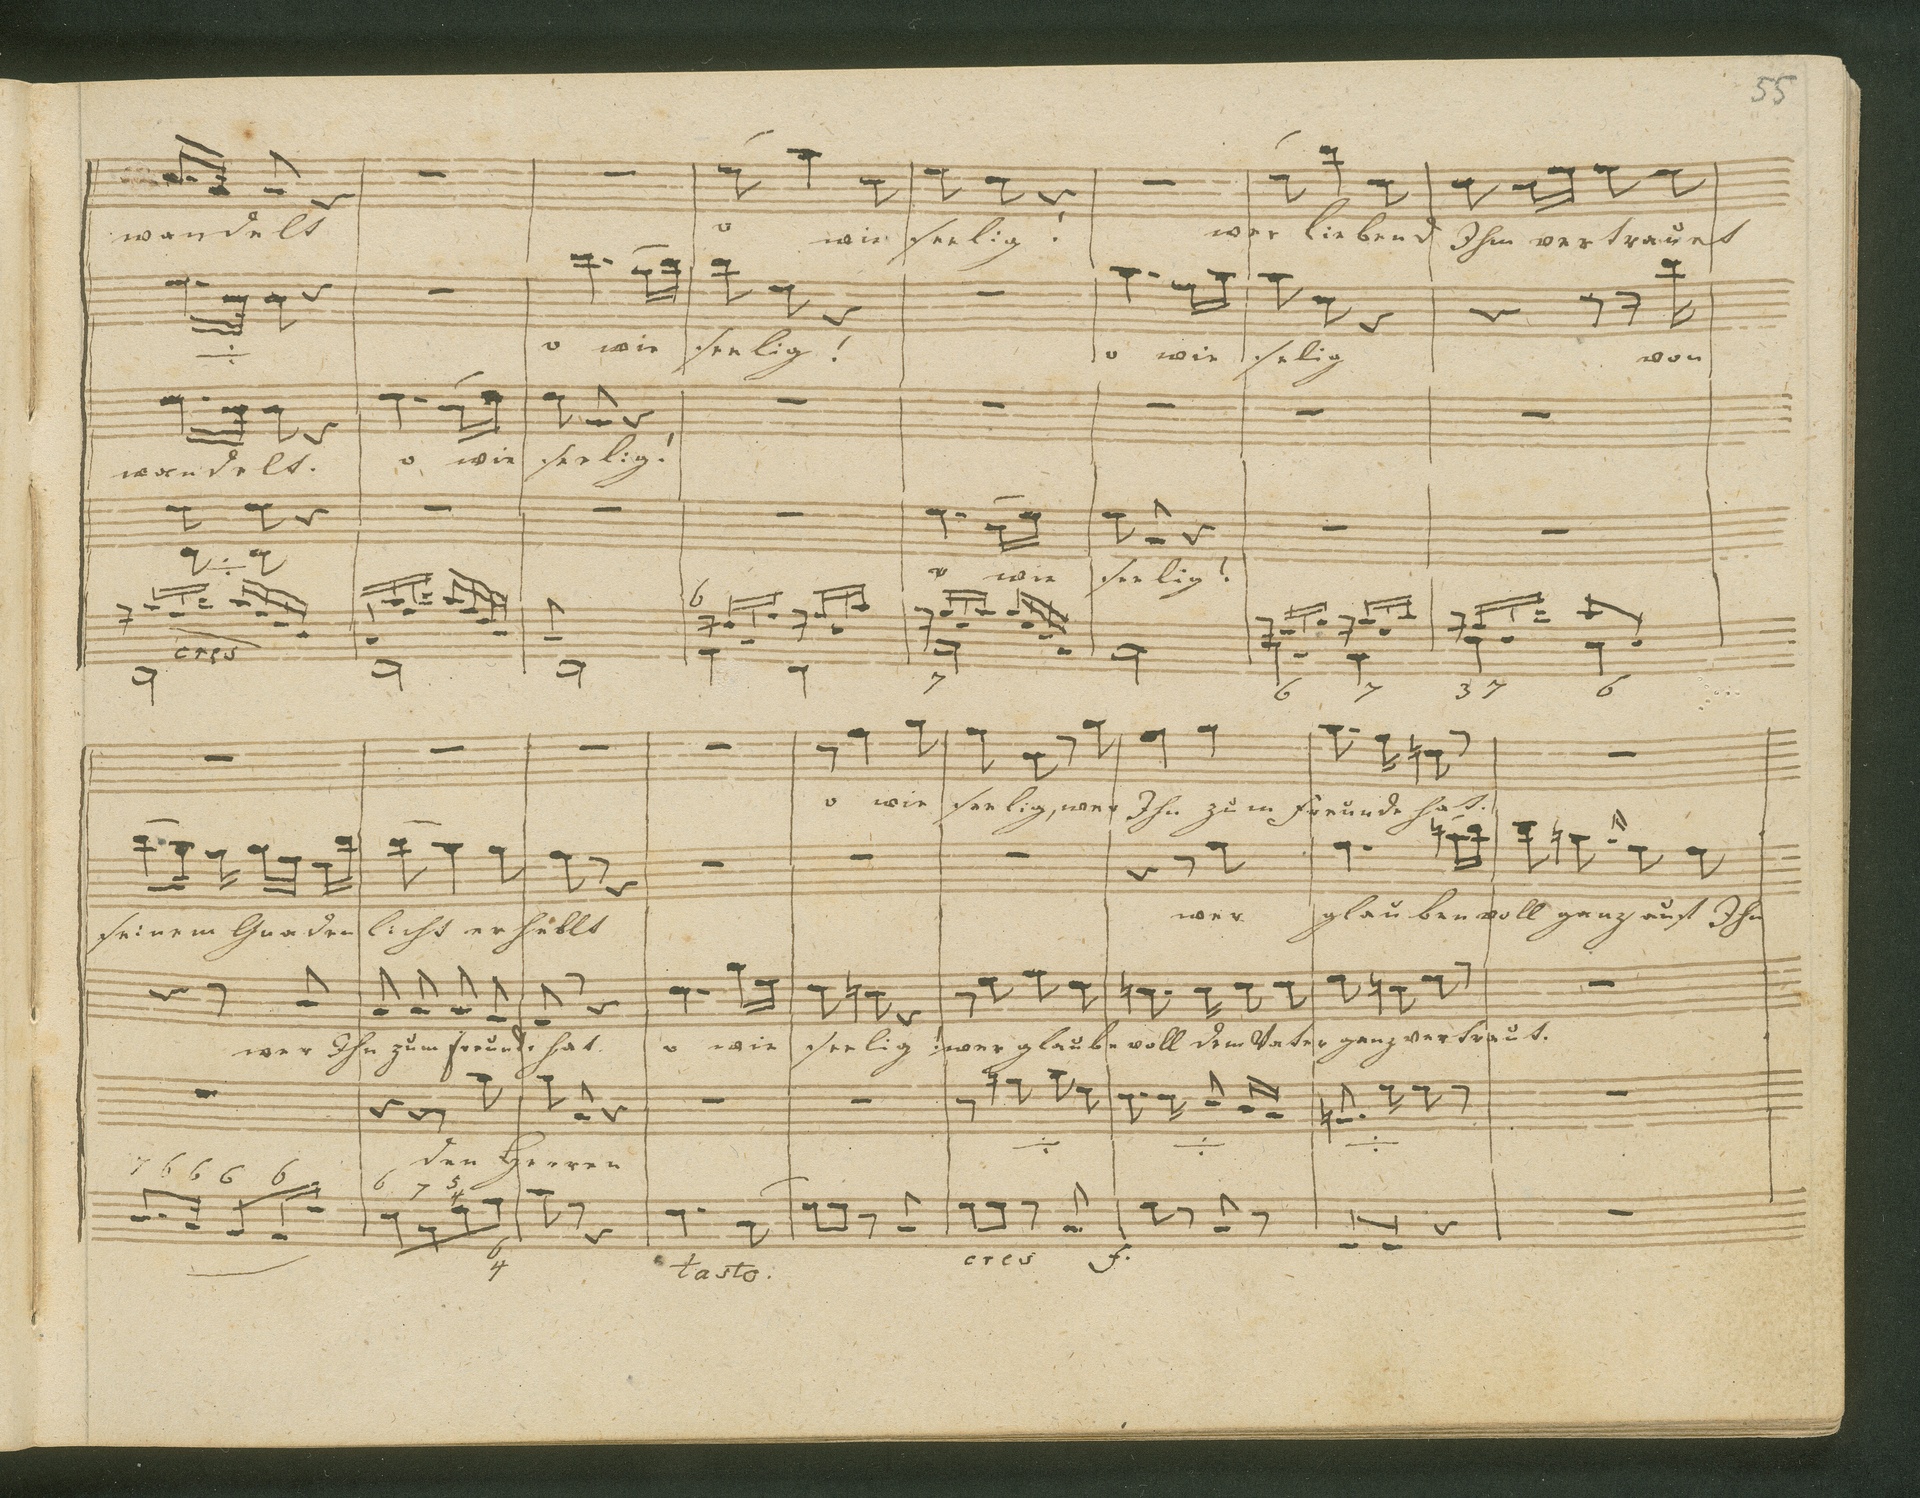 55
wandelt o wie seelig! wer liebend Ihm vertrauet
o wie seelig! o wie selig von
wandelt. o wie seelig!
o wie seelig!
6
cres
7 6 7 3 7 6
o wie seelig, wer Ihn zum Freunde hat.
seinem Gnadenlicht erhellt wer glaubenvoll ganz auf Ihn
wer Ihn zum Freunde hat. o wie seelig! wer glaubevoll dem Vater ganz vertraut.
den Herren
7 6 6 6 6 6 7 5 4
6 4
tasto. cres f.